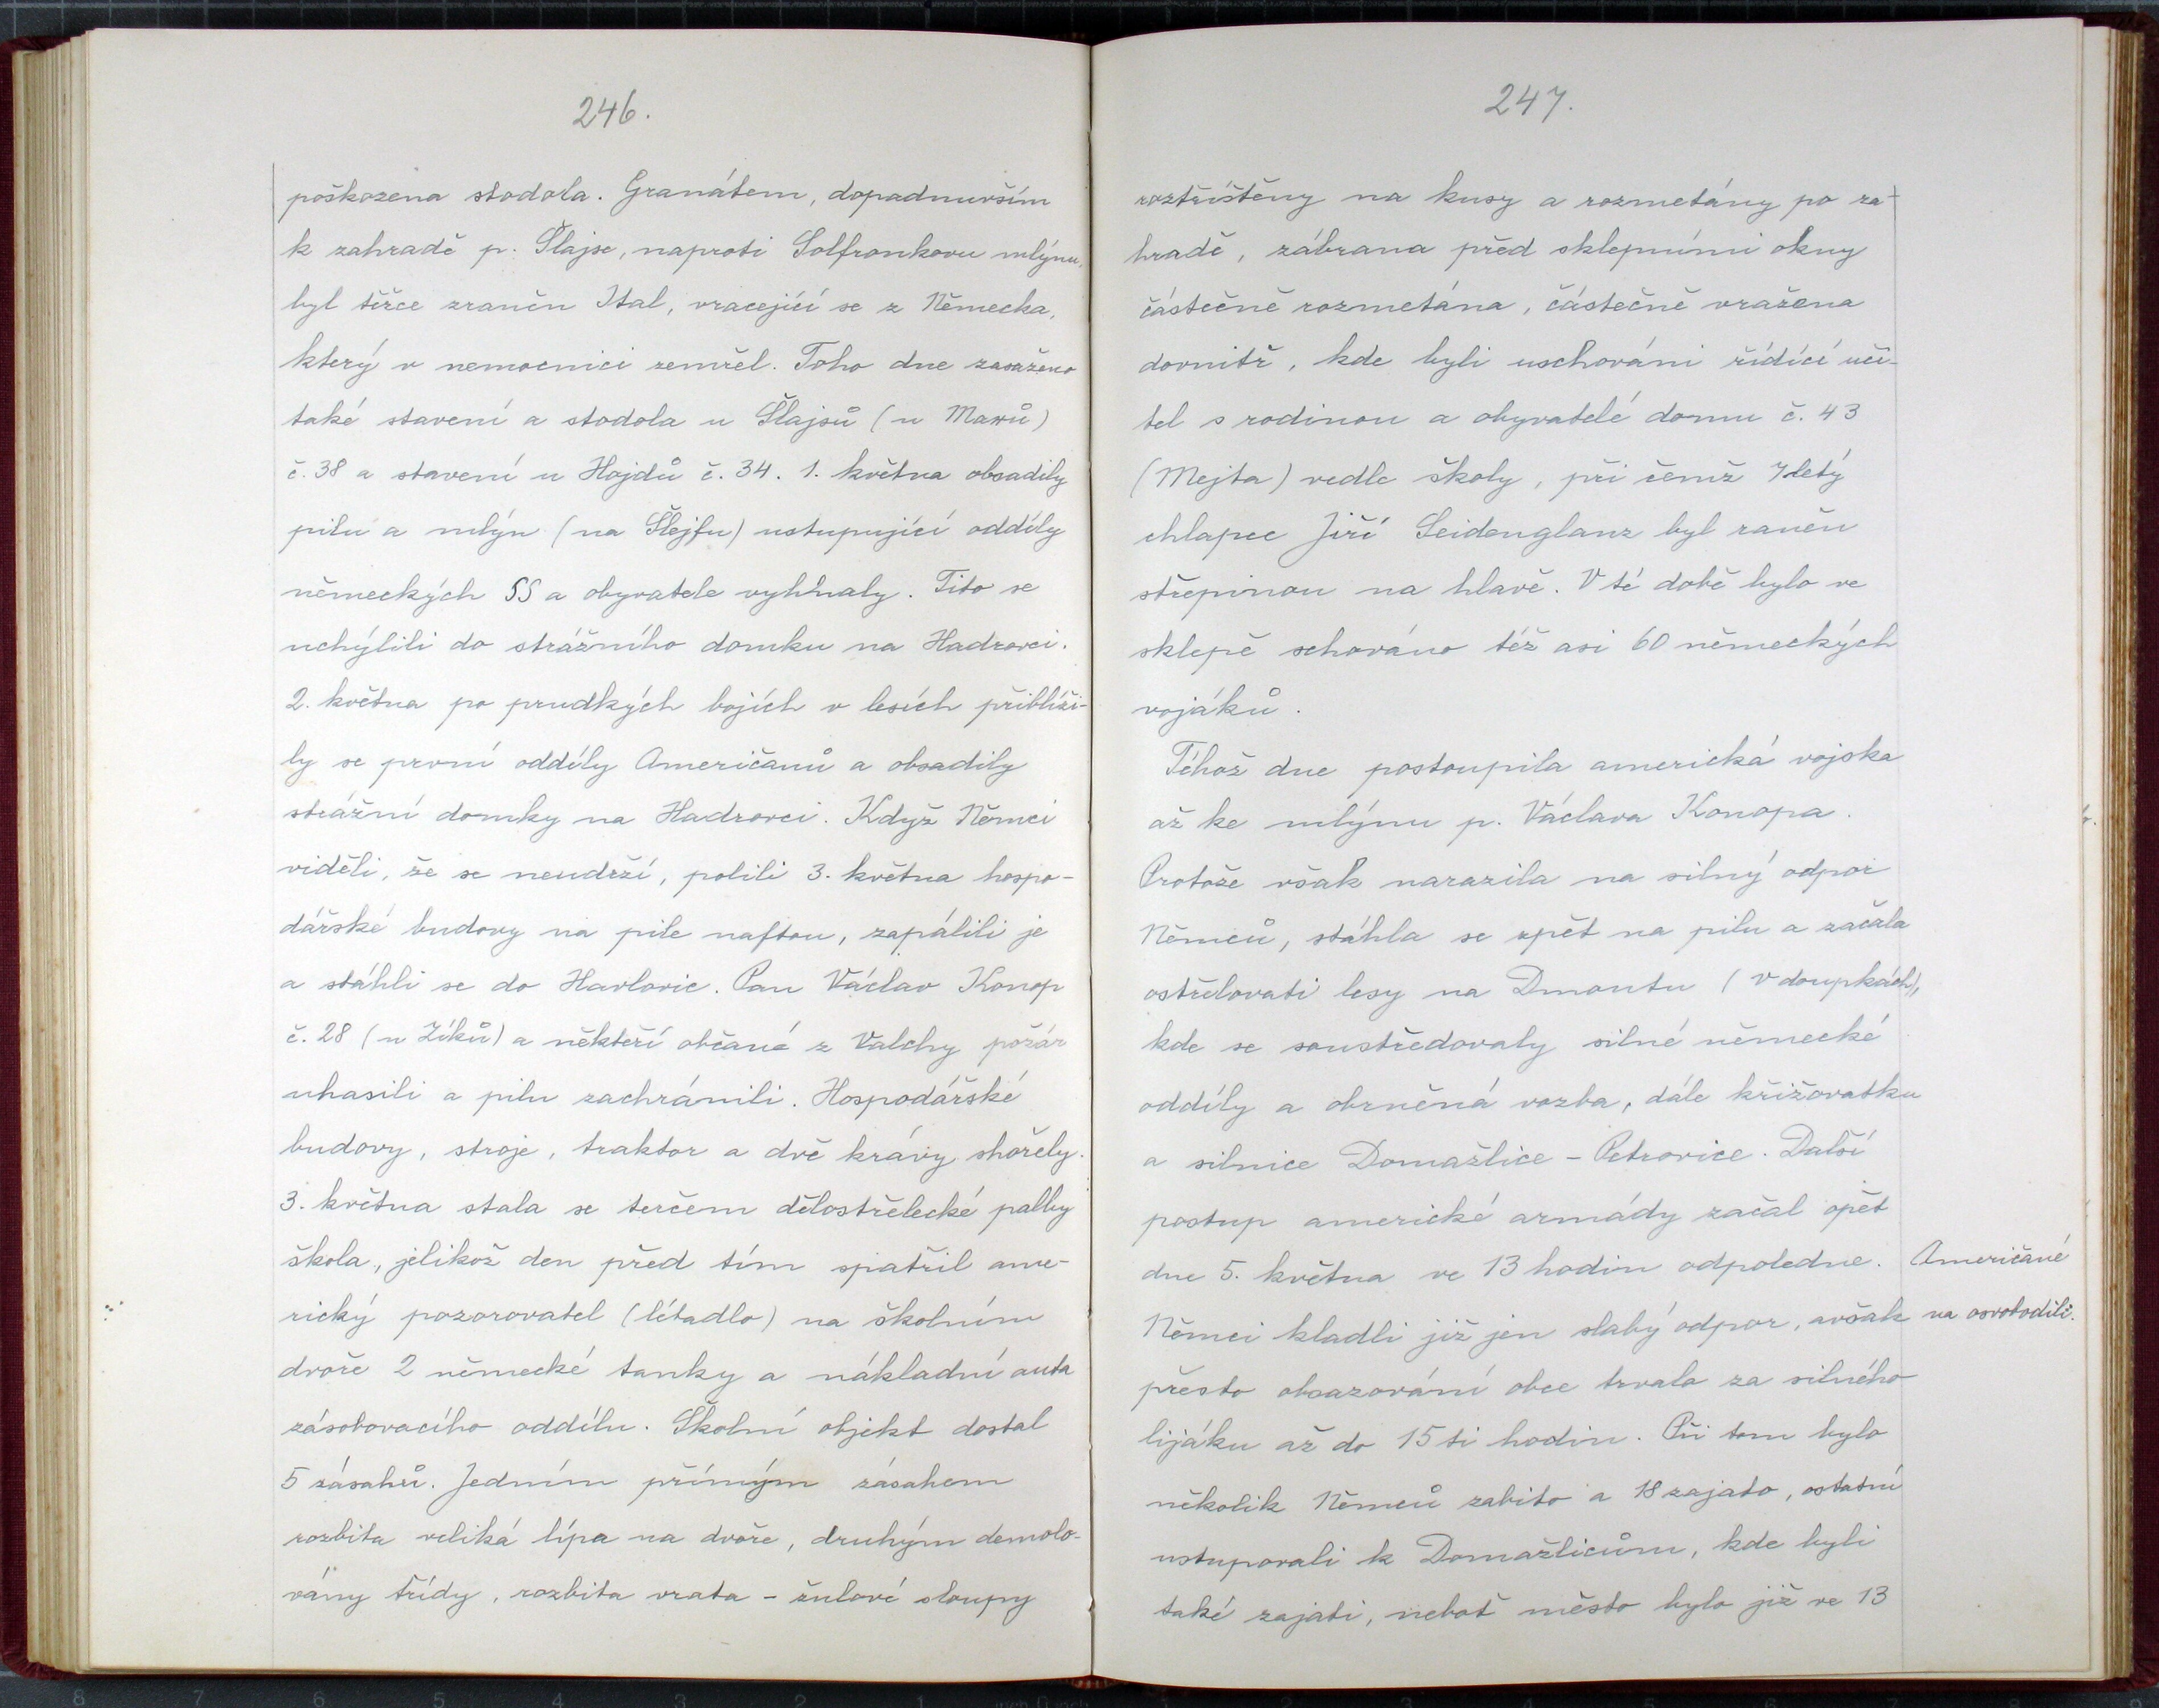 246.
poškozena stodola. Granátem, dopadnuvším
k zahradě p. Šlajse, naproti Solfronkovu mlýnu,
byl těžce zraněn Ital, vracející se z Německa,
který v nemocnici zemřel. Toho dne zasaženo
také stavení a stodola u Šlajsů (u Mawů)
č. 38 a stavení u Hojdů č. 34. 1. května obsadily
pilu a mlýn (na Šlejfu) ustupující oddíly
německých SS a obyvatele vyhnaly. Tito se
uchýlili do strážního domku na Hadrovci.
2. května po prudkých bojích v lesích přiblíži-
ly se první oddíly Američanů a obsadily
strážní domky na Hadrovci. Když Němci
viděli, že se neudrží, polili 3. května hospo-
dářské budovy na pile naftou, zapálili je
a stáhli se do Havlovic. Pan Václav Konop
č. 28 (u Zíků) a někteří občané z Valchy požár
uhasili a pilu zachránili. Hospodářské
budovy, stroje, traktor a dvě krávy shořely.
3. května stala se terčem dělostřelecké palby
škola, jelikož den před tím spatřil ame-
rický pozorovatel (létadlo) na školním
dvoře 2 německé tanky a nákladní auta
zásobovacího oddílu. Školní objekt dostal
5 zásahů. Jedním přímým zásahem
rozbita veliká lípa na dvoře, druhým demolo-
vány třídy, rozbita vrata - žulové sloupy
247.
roztříštěny na kusy a rozmetány po za-
hradě, zábrana před sklepními okny
částečně rozmetána, částečně vražena
dovnitř, kde byli uschováni řídící uči-
tel s rodinou a obyvatelé domu č. 43
(Mejta) vedle školy, při čemž 7letý
chlapec Jiří Seidenglanz byl raněn
střepinou na hlavě. V té době bylo ve
sklepě schováno též asi 60 německých
vojáků.
Téhož dne postoupila americká vojska
až ke mlýnu p. Václava Konopa.
Protože však narazila na silný odpor
Němců, stáhla se zpět na pilu a začala
ostřelovati lesy na Dmoutu (v doupkách),
kde se soustřeďovaly silné německé
oddíly a obrněná vozba, dále křižovatku
a silnice Domažlice - Petrovice. Další
postup americké armády začal opět
dne 5. května ve 13 hodin odpoledne.
Američané
Němci kladli již jen slabý odpor, avšak
na osvobodili.
přesto obsazování obce trvalo za silného
lijáku až do 15ti hodin. Při tom bylo
několik Němců zabito a 18 zajato, ostatní
ustupovali k Domažlicům, kde byli
také zajati, neboť město bylo již ve 13